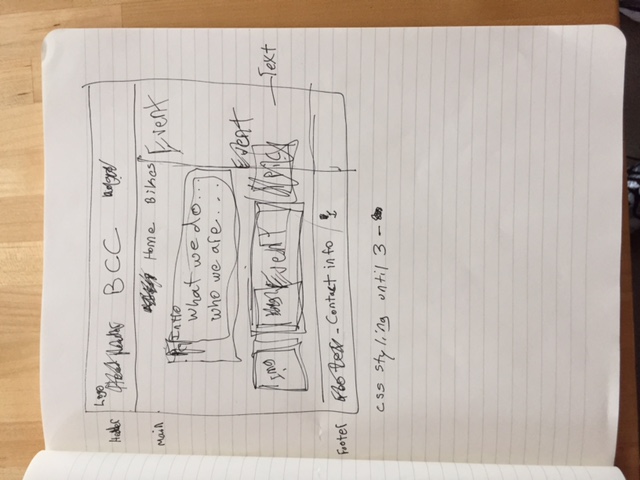 Logo
Header BCC
Main
Home Bikes Event
Intro
what we do...
who we are...
Event
Img Event Pic
Text
Footer Footer - Contact info
css styling until 3 -